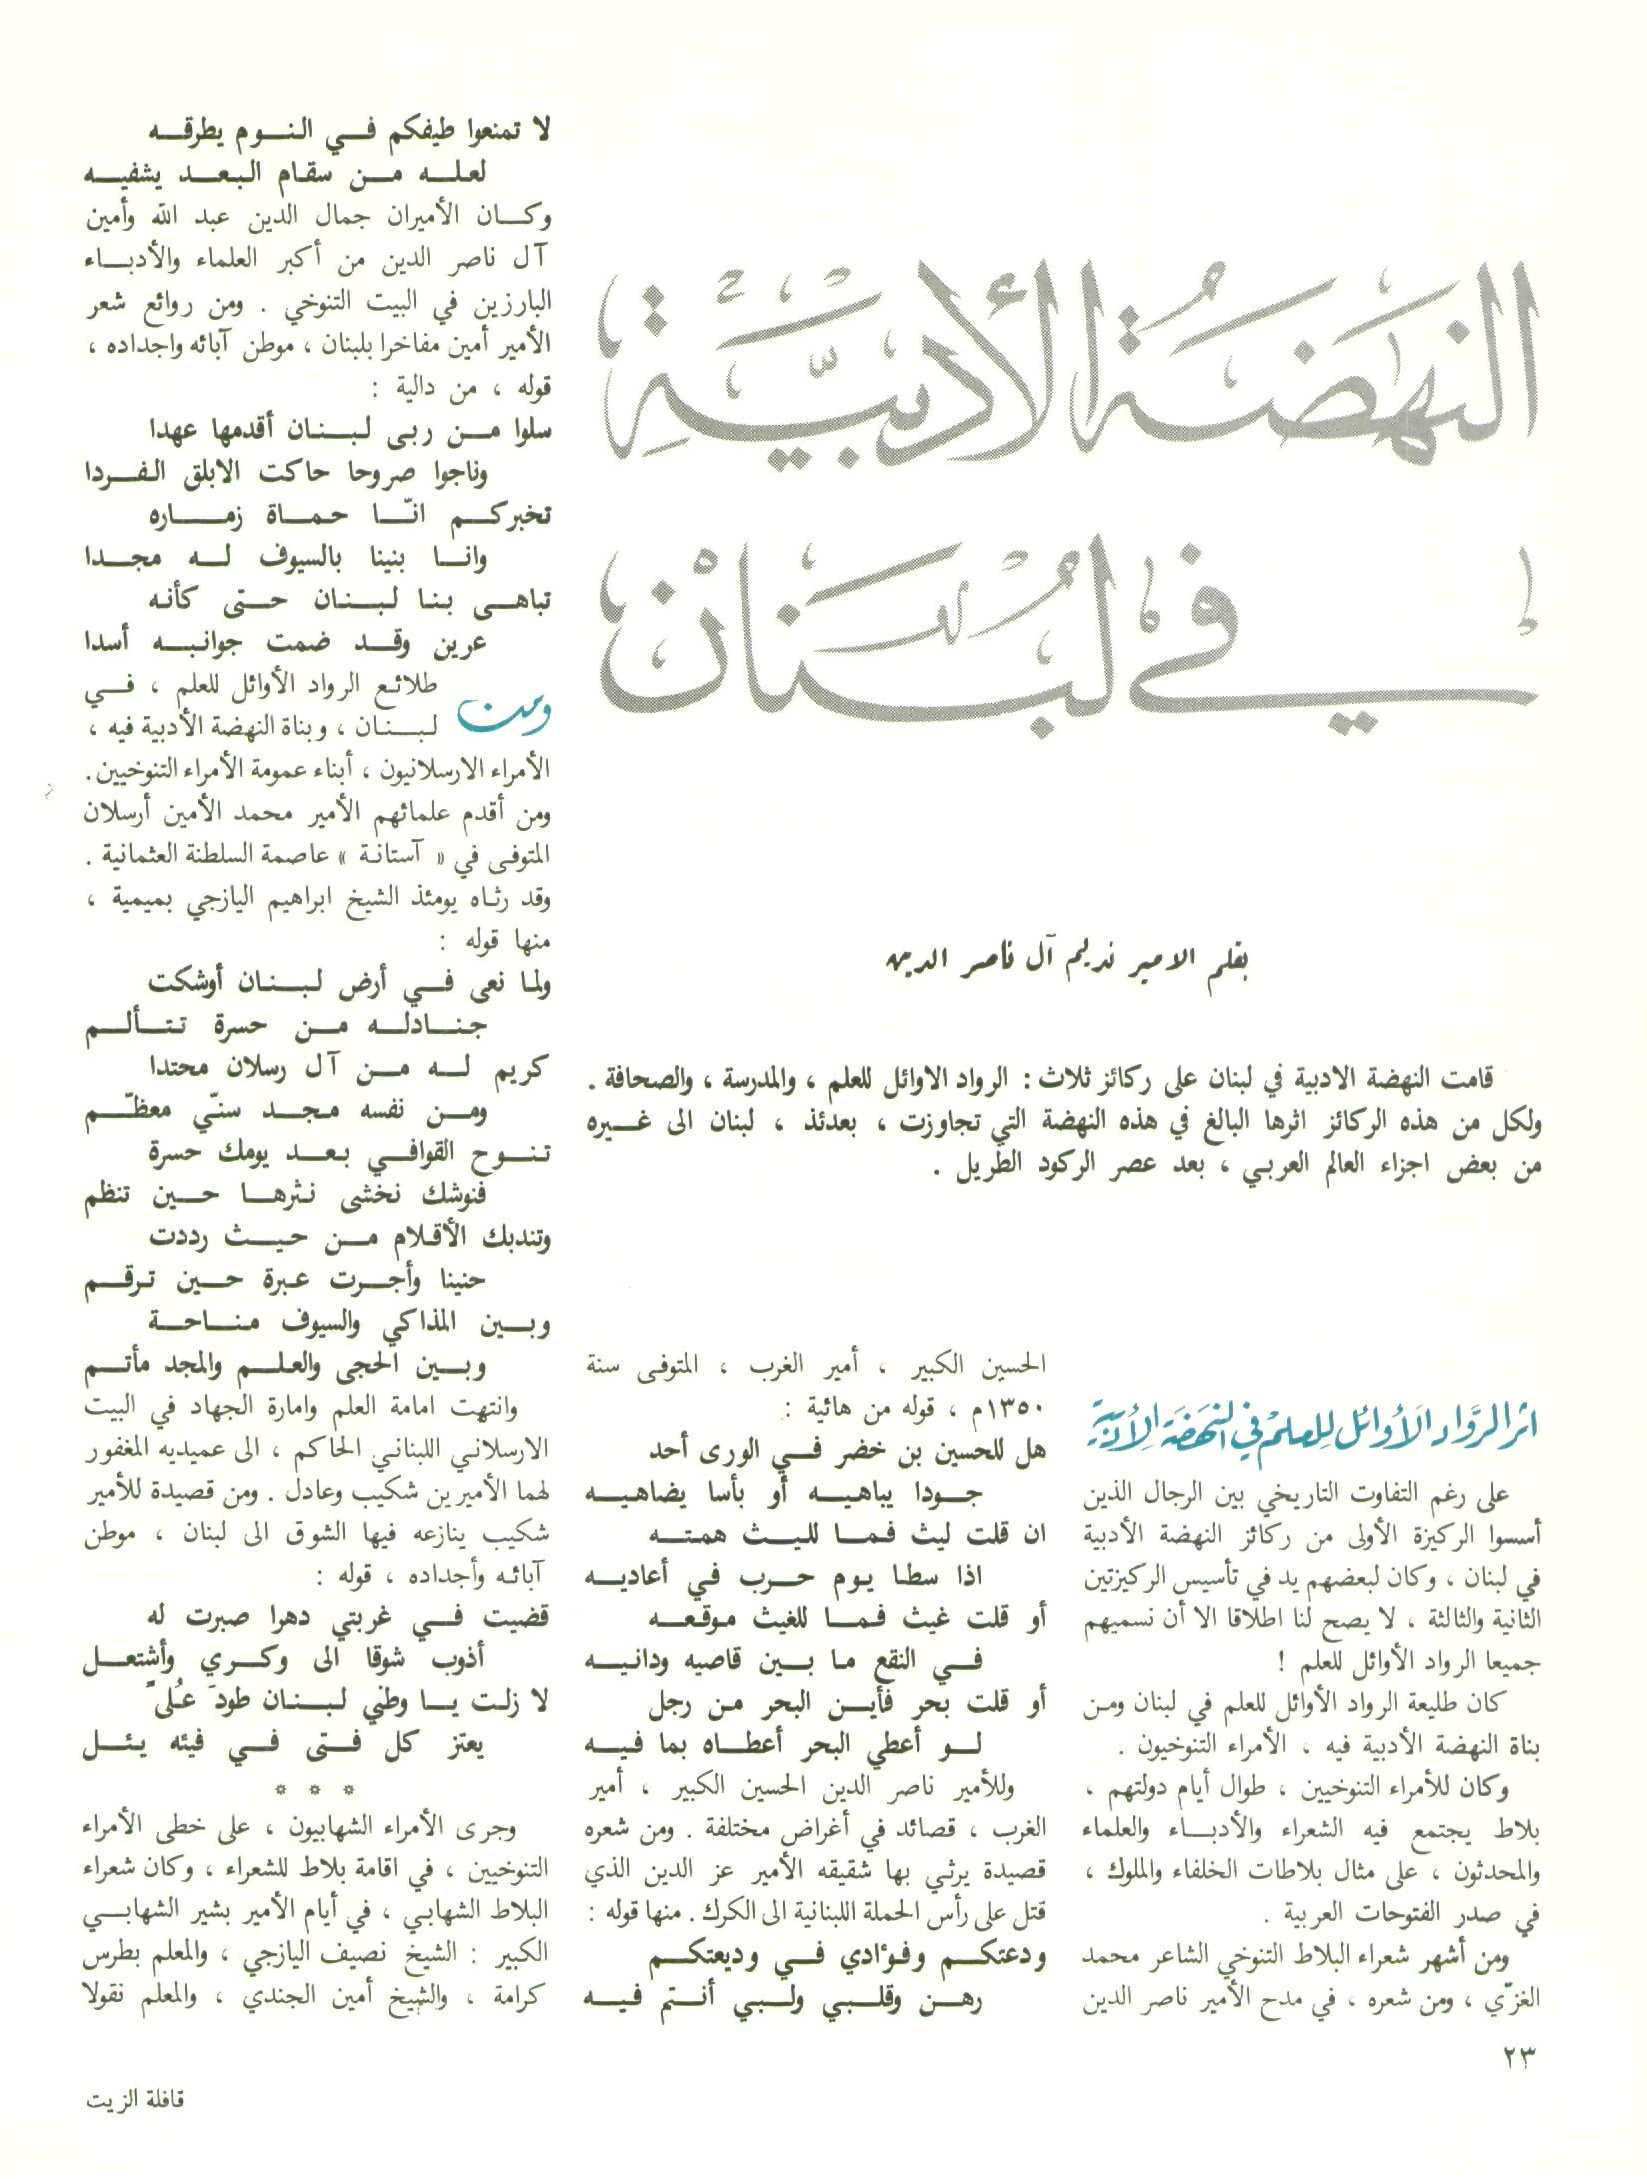 النهضة الأدبية
في لبنان
بقلم الامير نديم آل ناصر الدين
قامت النهضة الادبية في لبنان على ركائز ثلاث : الرواد الاوائل للعلم ، والمدرسة ، والصحافة .
ولكل من هذه الركائز اثرها البالغ في هذه النهضة التي تجاوزت ، بعدئذ ، لبنان الى غـيره
من بعض اجزاء العالم العربي ، بعد عصر الركود الطويل .
اثر الرّواد الأوائل للعلم في النهضة الأدبية
على رغم التفاوت التاريخي بين الرجال الذين
أسسوا الركيزة الأولى من ركائز النهضة الأدبية
في لبنان ، وكان لبعضهم يد في تأسيس الركيزتين
الثانية والثالثة ، لا يصح لنا اطلاقا الا أن نسميهم
جميعا الرواد الأوائل للعلم !
كان طليعة الرواد الأوائل للعلم في لبنان ومن
بناة النهضة الأدبية فيه ، الأمراء التنوخيون .
وكان للأمراء التنوخيين ، طوال أيام دولتهم ،
بلاط يجتمع فيه الشعراء والأدباء والعلماء
والمحدثون ، على مثال بلاطات الخلفاء والملوك ،
في صدر الفتوحات العربية .
ومن أشهر شعراء البلاط التنوخي الشاعر محمد
الغزّي ، ومن شعره ، في مدح الأمير ناصر الدين
الحسين الكبير ، أمير الغرب ، المتوفى سنة
١٣٥٠م ، قوله من هائية :
هل للحسين بن خضر في الورى أحد
جودا يباهيه أو بأسا يضاهيه
ان قلت ليث فما لليث همته
اذا سطا يوم حرب في أعاديه
أو قلت غيث فما للغيث موقعه
في النقع ما بين قاصيه ودانيه
أو قلت بحر فأين البحر من رجل
لو أعطي البحر أعطاه بما فيه
وللأمير ناصر الدين الحسين الكبير ، أمير
الغرب ، قصائد في أغراض مختلفة . ومن شعره
قصيدة يرثي بها شقيقه الأمير عز الدين الذي
قتل على رأس الحملة اللبنانية الى الكرك . منها قوله :
ودعتكم وفؤادي في وديعتكم
رهن وقلبي ولبي أنتم فيه
لا تمنعوا طيفكم في النوم يطرقه
لعله من سقام البعد يشفيه
وكان الأميران جمال الدين عبد الله وأمين
آل ناصر الدين من أكبر العلماء والأدباء
البارزين في البيت التنوخي . ومن روائع شعر
الأمير أمين مفاخرا بلبنان ، موطن آبائه واجداده ،
قوله ، من دالية :
سلوا من ربى لبنان أقدمها عهدا
وناجوا صروحا حاكت الابلق الفردا
تخبركم انّا حماة زماره
وانا بنينا بالسيوف له مجدا
تباهى بنا لبنان حتى كأنه
عرين وقد ضمت جوانبه أسدا
ومن طلائع الرواد الأوائل للعلم ، في
لبنان ، وبناة النهضة الأدبية فيه ،
الأمراء الارسلانيون ، أبناء عمومة الأمراء التنوخيين .
ومن أقدم علمائهم الأمير محمد الأمين أرسلان
المتوفى في « آستانة » عاصمة السلطنة العثمانية .
وقد رثاه يومئذ الشيخ ابراهيم اليازجي بميمية ،
منها قوله :
ولما نعى في أرض لبنان أوشكت
جنادله من حسرة تتألم
كريم له من آل رسلان محتدا
ومن نفسه مجد سنّي معظّم
تنوح القوافي بعد يومك حسرة
فنوشك نخشى نثرها حين تنظم
وتندبك الأقلام من حيث رددت
حنينا وأجرت عبرة حين ترقم
وبين المذاكي والسيوف مناحة
وبين الحجى والعلم والمجد مأتم
وانتهت امامة العلم وامارة الجهاد في البيت
الارسلاني اللبناني الحاكم ، الى عميديه المغفور
لهما الأميرين شكيب وعادل . ومن قصيدة للأمير
شكيب ينازعه فيها الشوق الى لبنان ، موطن
آبائه وأجداده ، قوله :
قضيت في غربتي دهرا صبرت له
أذوب شوقا الى وكري وأشتعل
لا زلت يا وطني لبنان طودَ عُلىً
يعتز كل فتى في فيئه يئل
* * *
وجرى الأمراء الشهابيون ، على خطى الأمراء
التنوخيين ، في اقامة بلاط للشعراء ، وكان شعراء
البلاط الشهابي ، في أيام الأمير بشير الشهابي
الكبير : الشيخ نصيف اليازجي ، والمعلم بطرس
كرامة ، والشيخ أمين الجندي ، والمعلم نقولا
٢٣
قافلة الزيت